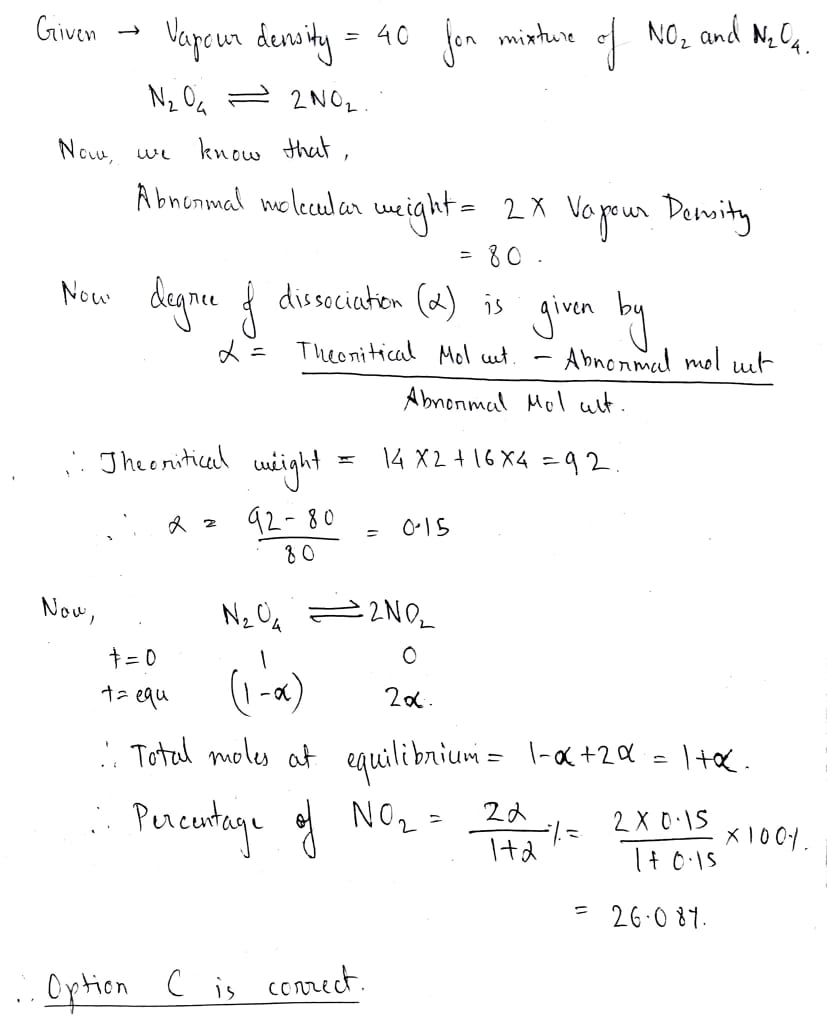 Given → Vapour density = 40 for mixture of NO₂ and N₂O₄.
N₂O₄ ⇌ 2NO₂.
Now, we know that,
Abnormal molecular weight = 2 X Vapour Density
= 80.
Now degree of dissociation (α) is given by
α = Theoritical Mol wt. - Abnormal mol wt
Abnormal Mol wt.
∴ Theoritical weight = 14 X2 + 16 X4 = 92.
∴ α = 92 - 80 = 0.15
80
Now, N₂O₄ ⇌ 2NO₂
t=0 1 0
t= equ (1-α) 2α.
∴ Total moles at equilibrium = 1-α+2α = 1+α.
∴ Percentage of NO₂ = 2α % = 2 X 0.15 X 100%.
1+α 1+ 0.15
= 26.08%.
∴ Option C is correct.